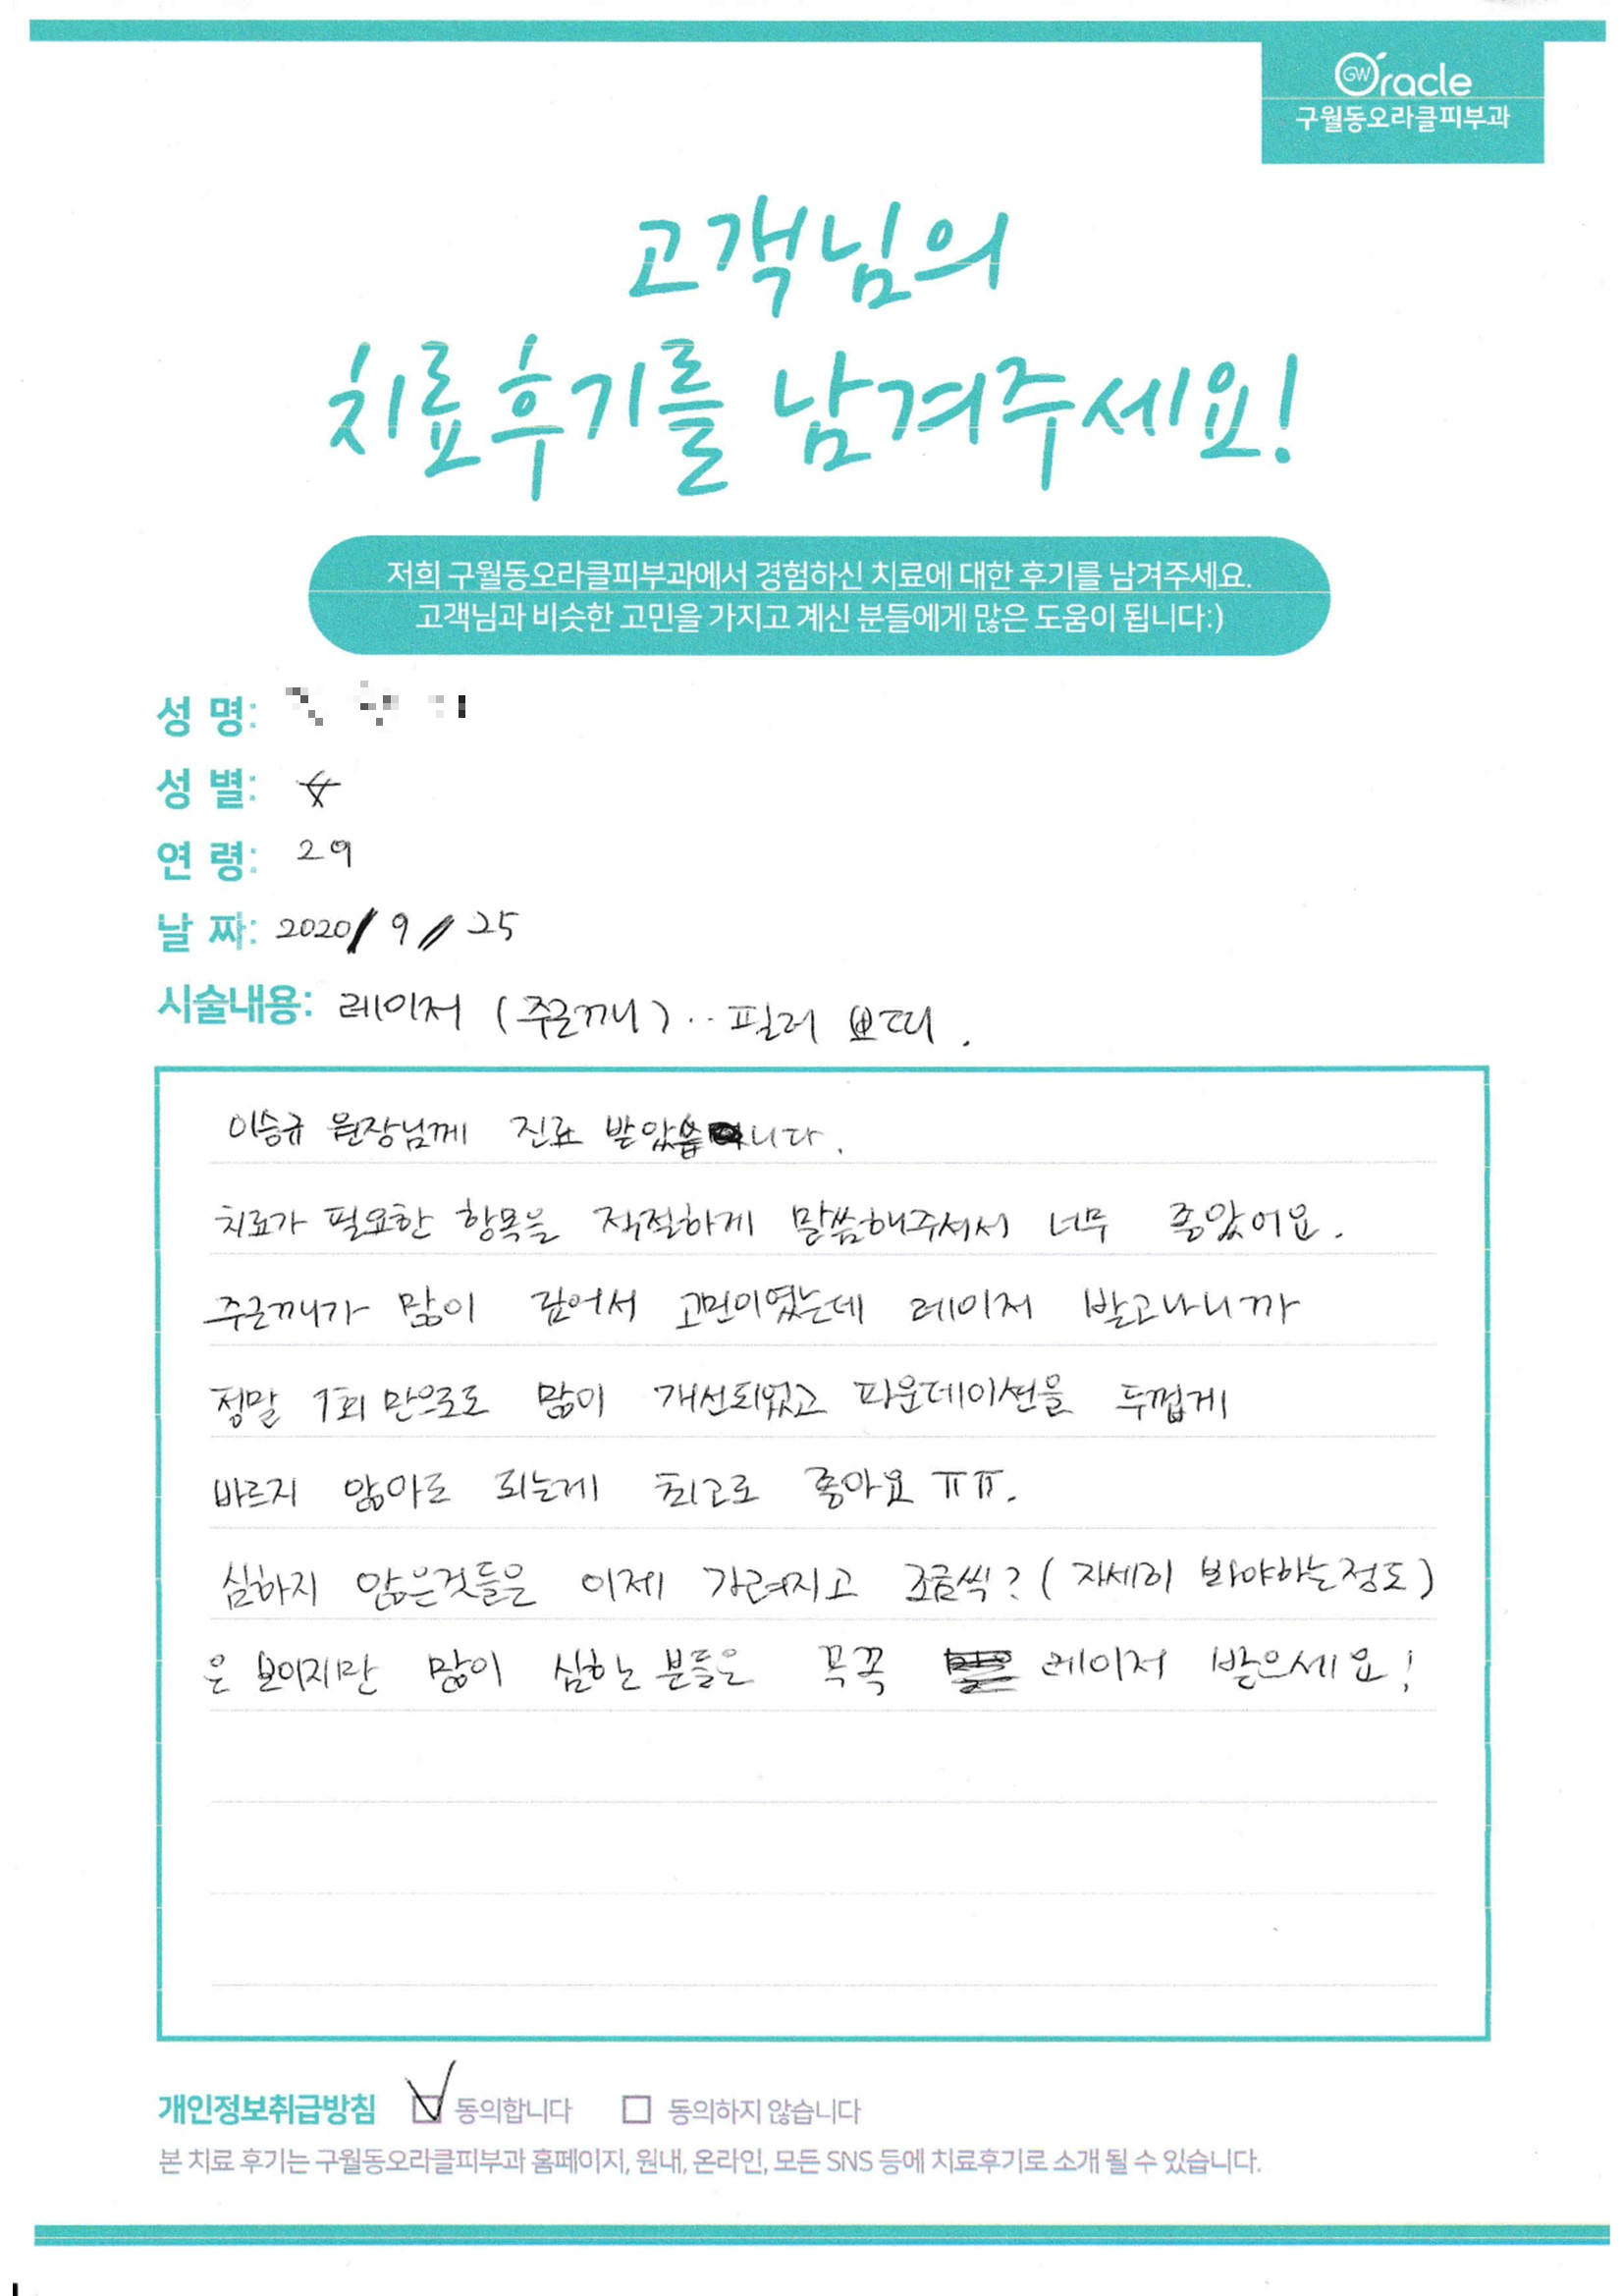 GW Oracle
구월동오라클피부과
고객님의
치료후기를 남겨주세요!
저희 구월동오라클피부과에서 경험하신 치료에 대한 후기를 남겨주세요.
고객님과 비슷한 고민을 가지고 계신 분들에게 많은 도움이 됩니다:)
성 명:
성 별: 女
연 령: 29
날 짜: 2020/9/25
시술내용: 레이저 (주근깨).. 필러 보띠.
이승규 원장님께 진료 받았습니다.
치료가 필요한 항목을 적절하게 말씀해주셔서 너무 좋았어요.
주근깨가 많이 짙어서 고민이였는데 레이저 받고나니까
정말 1회 만으로도 많이 개선되었고 파운데이션을 두껍게
바르지 않아도 되는게 최고로 좋아요 ㅠㅠ.
심하지 않은것들은 이제 가려지고 조금씩? (자세히 봐야하는정도)
은 보이지만 많이 심한 분들은 꼭꼭 레이저 받으세요!
개인정보취급방침 동의합니다 동의하지 않습니다
본 치료 후기는 구월동오라클피부과 홈페이지, 원내, 온라인, 모든 SNS 등에 치료후기로 소개 될 수 있습니다.